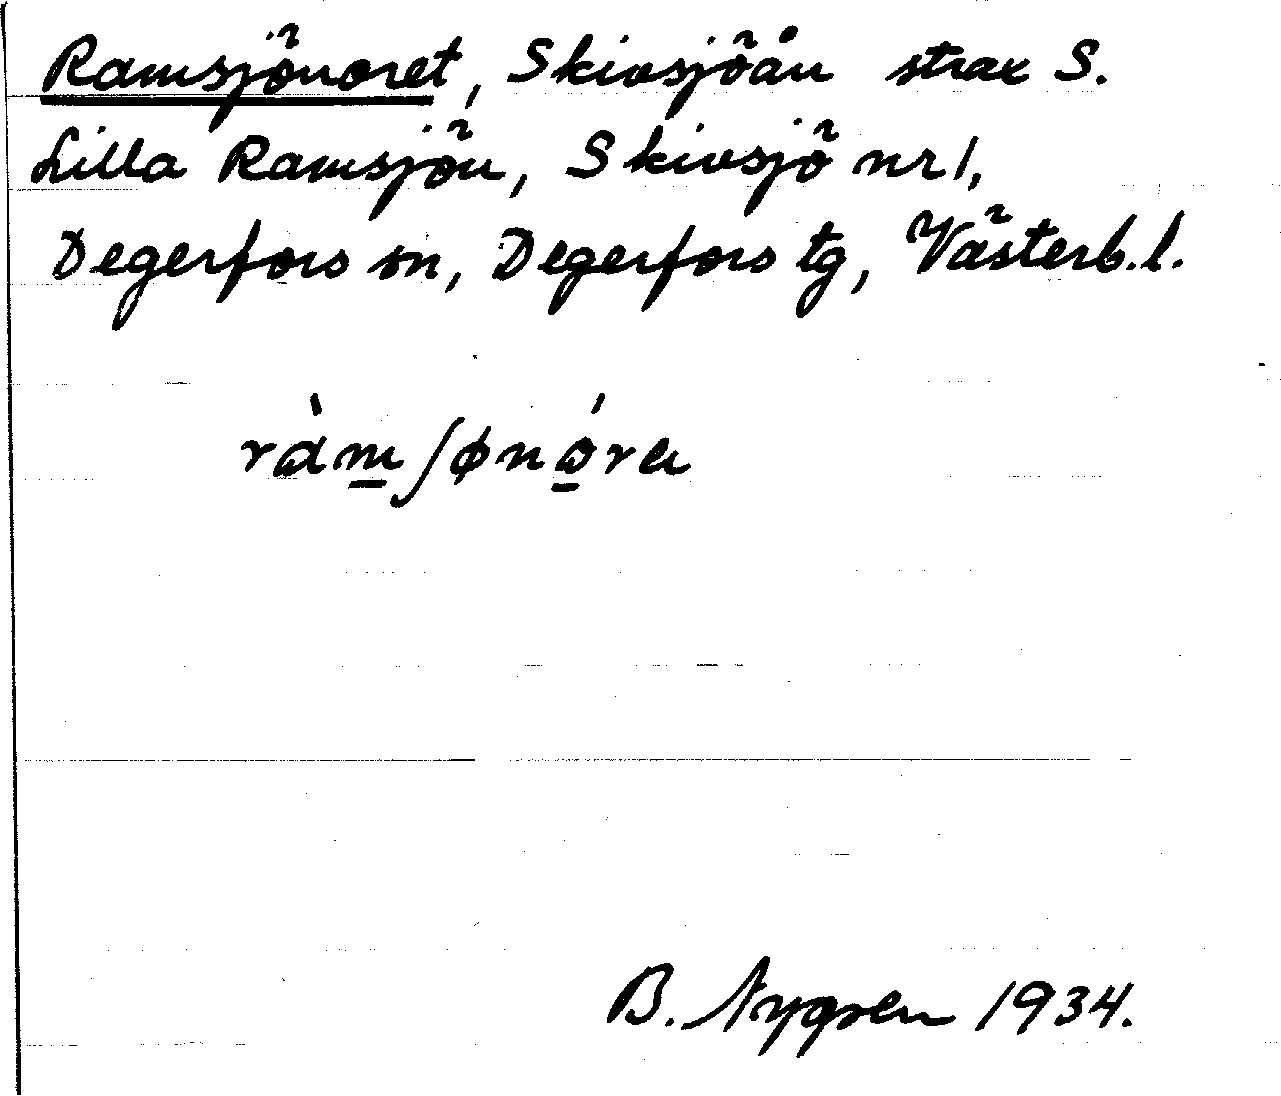 Ramsjönoret, Skivsjöån strax S.
Lilla Ramsjön, Skivsjö nr 1,
Degerfors sn, Degerfors tg, Västerb.l.
B. Nygren 1934.